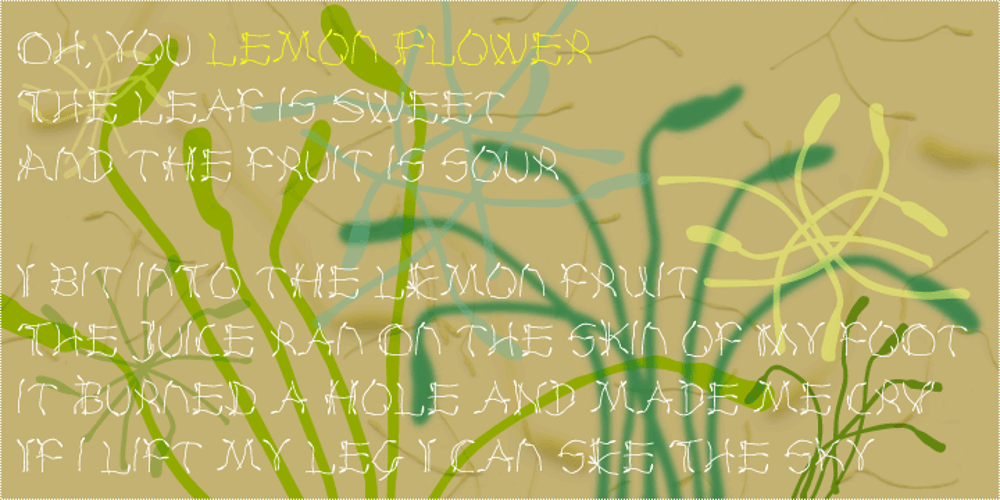 OH, YOU LEMON FLOWER
THE LEAF IS SWEET
AND THE FRUIT IS SOUR
Y BIT INTO THE LEMON FRUIT
THE JUICE RAN ON THE SKIN OF MY FOOT
IT BURNED A HOLE AND MADE ME CRY
YF I LIFT MY LEG Y CAN SEE THE SKY